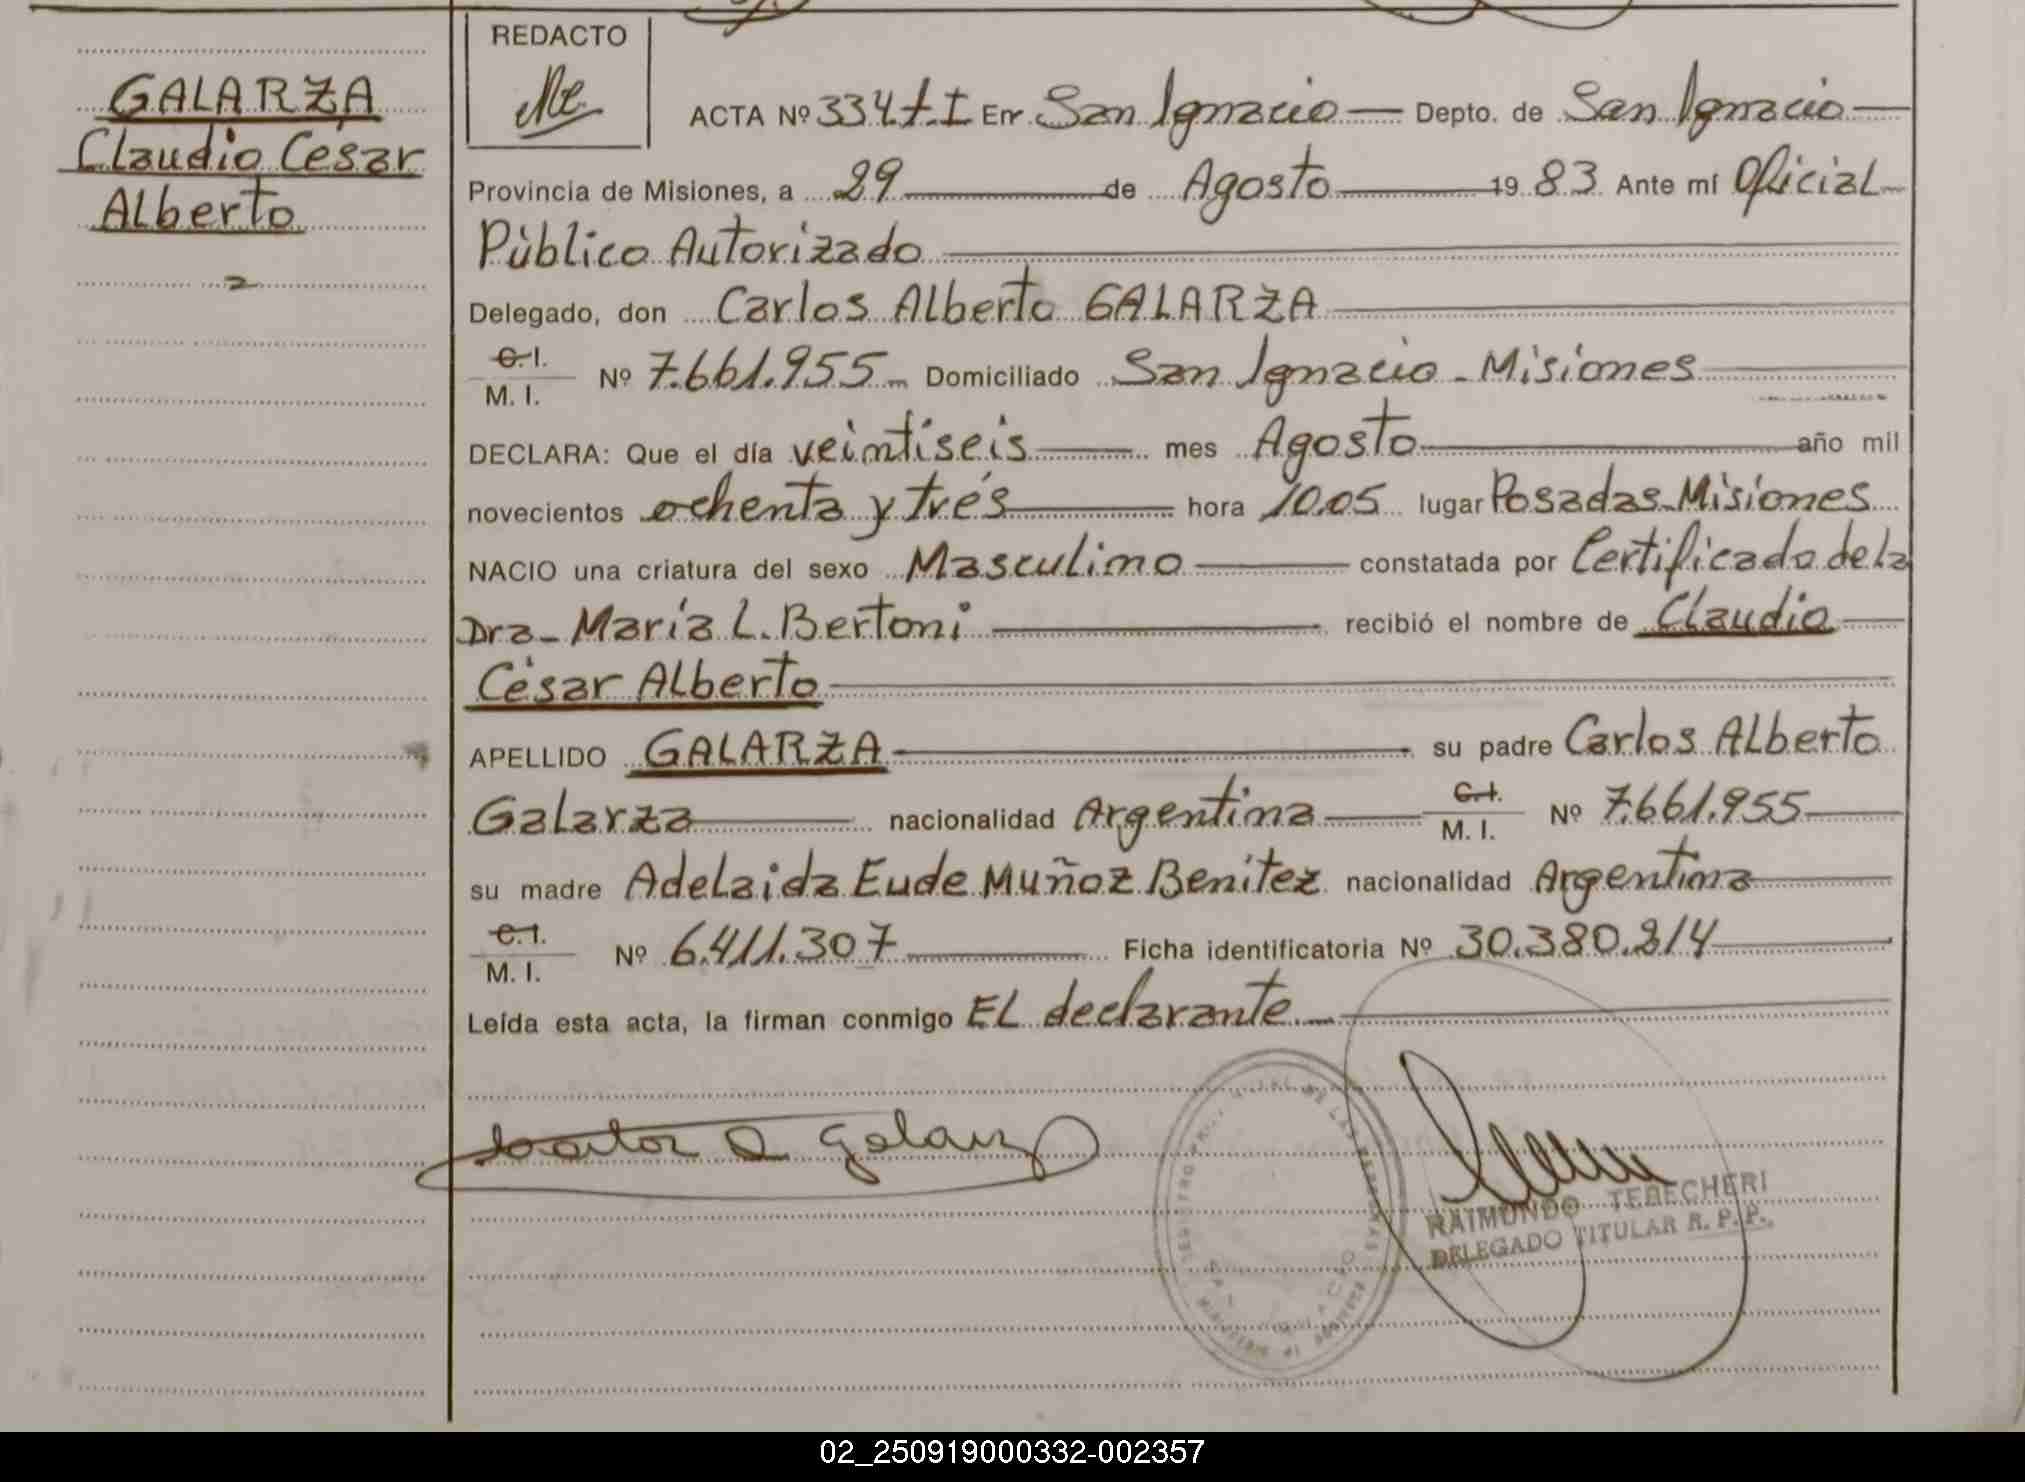 GALARZA
Claudio César
Alberto
REDACTO
ACTA Nº 334 t.I En San Ignacio Depto. de San Ignacio
Provincia de Misiones, a 29 de Agosto 1983 Ante mí Oficial
Público Autorizado
Delegado, don Carlos Alberto GALARZA
C.I.
M. I. Nº 7.661.955 Domiciliado San Ignacio - Misiones
DECLARA: Que el día veintiseis mes Agosto año mil
novecientos ochenta y trés hora 10.05 lugar Posadas-Misiones
NACIO una criatura del sexo Masculino constatada por Certificado de la
Dra- María L. Bertoni recibió el nombre de Claudio
César Alberto
APELLIDO GALARZA su padre Carlos Alberto
Galarza nacionalidad Argentina C.I.
M. I. Nº 7.661.955
su madre Adelaida Eude Muñoz Benítez nacionalidad Argentina
C.I.
M. I. Nº 6.411.307 Ficha identificatoria Nº 30.380.214
Leída esta acta, la firman conmigo El declarante
RAIMUNDO TEBECHERI
DELEGADO TITULAR R. P. P.
02_250919000332-002357